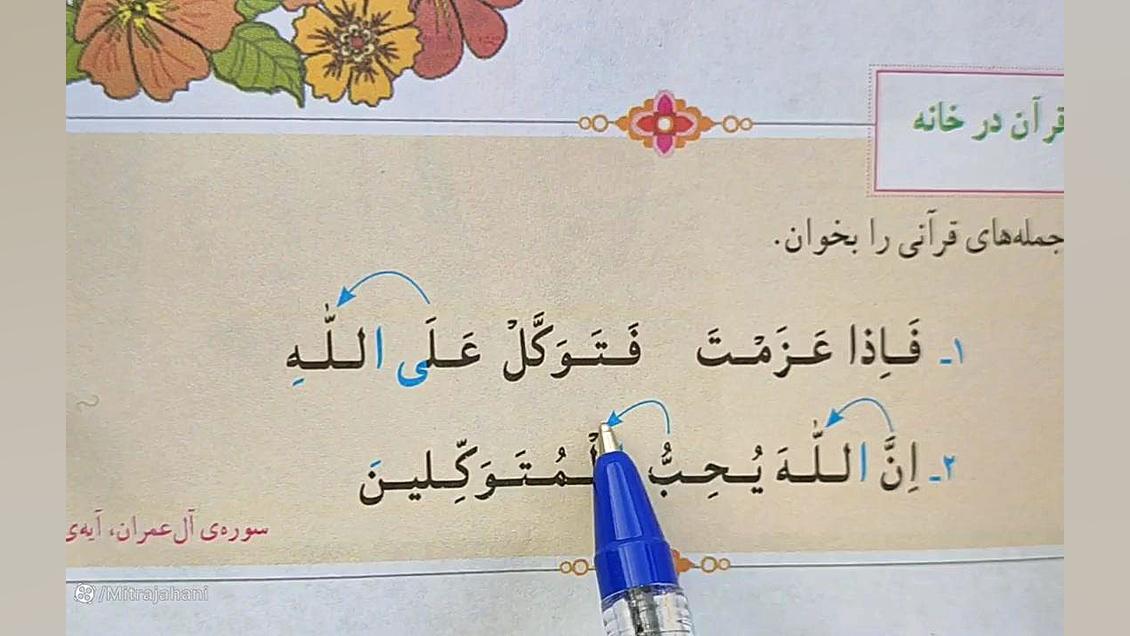 قرآن در خانه
جمله‌های قرآنی را بخوان.
۱ـ فَاِذا عَزَمْتَ فَتَوَكَّلْ عَلَى اللّٰهِ
۲ـ اِنَّ اللّٰهَ يُحِبُّ الْمُتَوَكِّلينَ
سوره‌ی آل‌عمران، آیه‌ی
/Mitrajahani